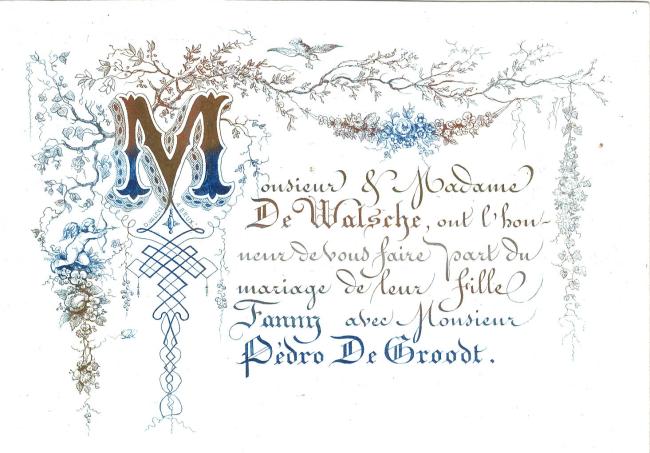 Monsieur & Madame
De Walsche, ont l'hon-
neur de vous faire part du
mariage de leur fille
Fanny avec Monsieur
Pédro De Groodt.